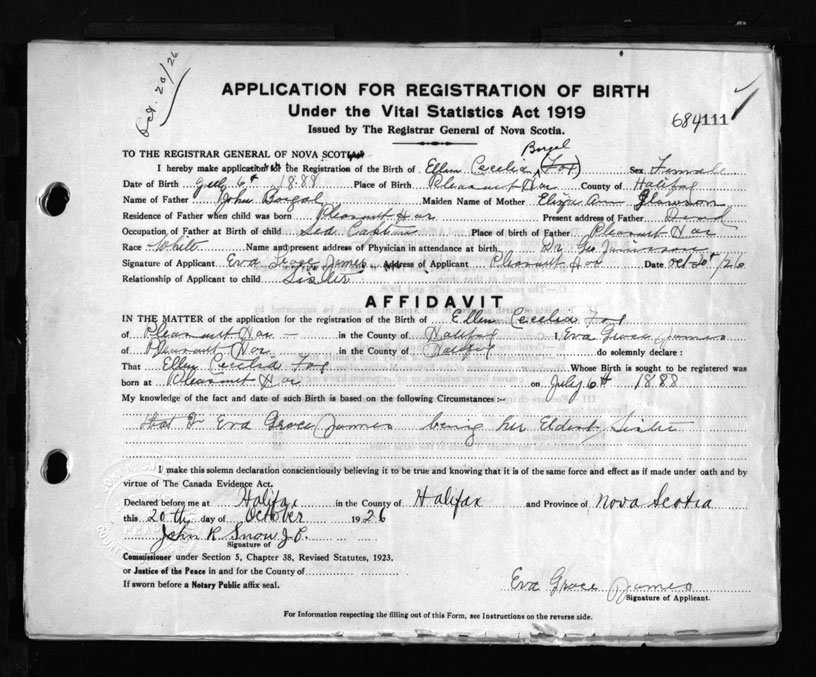 Oct. 20/26
APPLICATION FOR REGISTRATION OF BIRTH
Under the Vital Statistics Act 1919
684111
Issued by The Registrar General of Nova Scotia.
TO THE REGISTRAR GENERAL OF NOVA SCOTIA
I hereby make application for the Registration of the Birth of Ellen Cecelia (Fox) Sex Female
Date of Birth July 6th 1888 Place of Birth Pleasant Har County of Halifax
Name of Father John Maiden Name of Mother Eliza Ann
Residence of Father when child was born Pleasant Har Present address of Father Dead
Occupation of Father at Birth of child Sea Captain Place of birth of Father Pleasant Har
Race White Name and present address of Physician in attendance at birth. Dr Geo
Signature of Applicant Eva Grace James Address of Applicant Pleasant Har Date Oct 20th/26
Relationship of Applicant to child Sister
AFFIDAVIT
IN THE MATTER of the application for the registration of the Birth of Ellen Cecelia Fox
of Pleasant Har - in the County of Halifax I, Eva Grace James
of Pleasant Har in the County of Halifax do solemnly declare :
That Ellen Cecelia Fox Whose Birth is sought to be registered was
born at Pleasant Har on July 6th 1888
My knowledge of the fact and date of such Birth is based on the following Circumstances :-
that I Eva Grace James being her Eldest Sister
I make this solemn declaration conscientiously believing it to be true and knowing that it is of the same force and effect as if made under oath and by
virtue of The Canada Evidence Act.
Declared before me at Halifax in the County of Halifax and Province of Nova Scotia
this 20th day of October 1926
John R Snow J.P.
Signature of
Commissioner under Section 5, Chapter 38, Revised Statutes, 1923.
or Justice of the Peace in and for the County of
If sworn before a Notary Public affix seal.
Eva Grace James
Signature of Applicant.
For Information respecting the filling out of this Form, see Instructions on the reverse side.